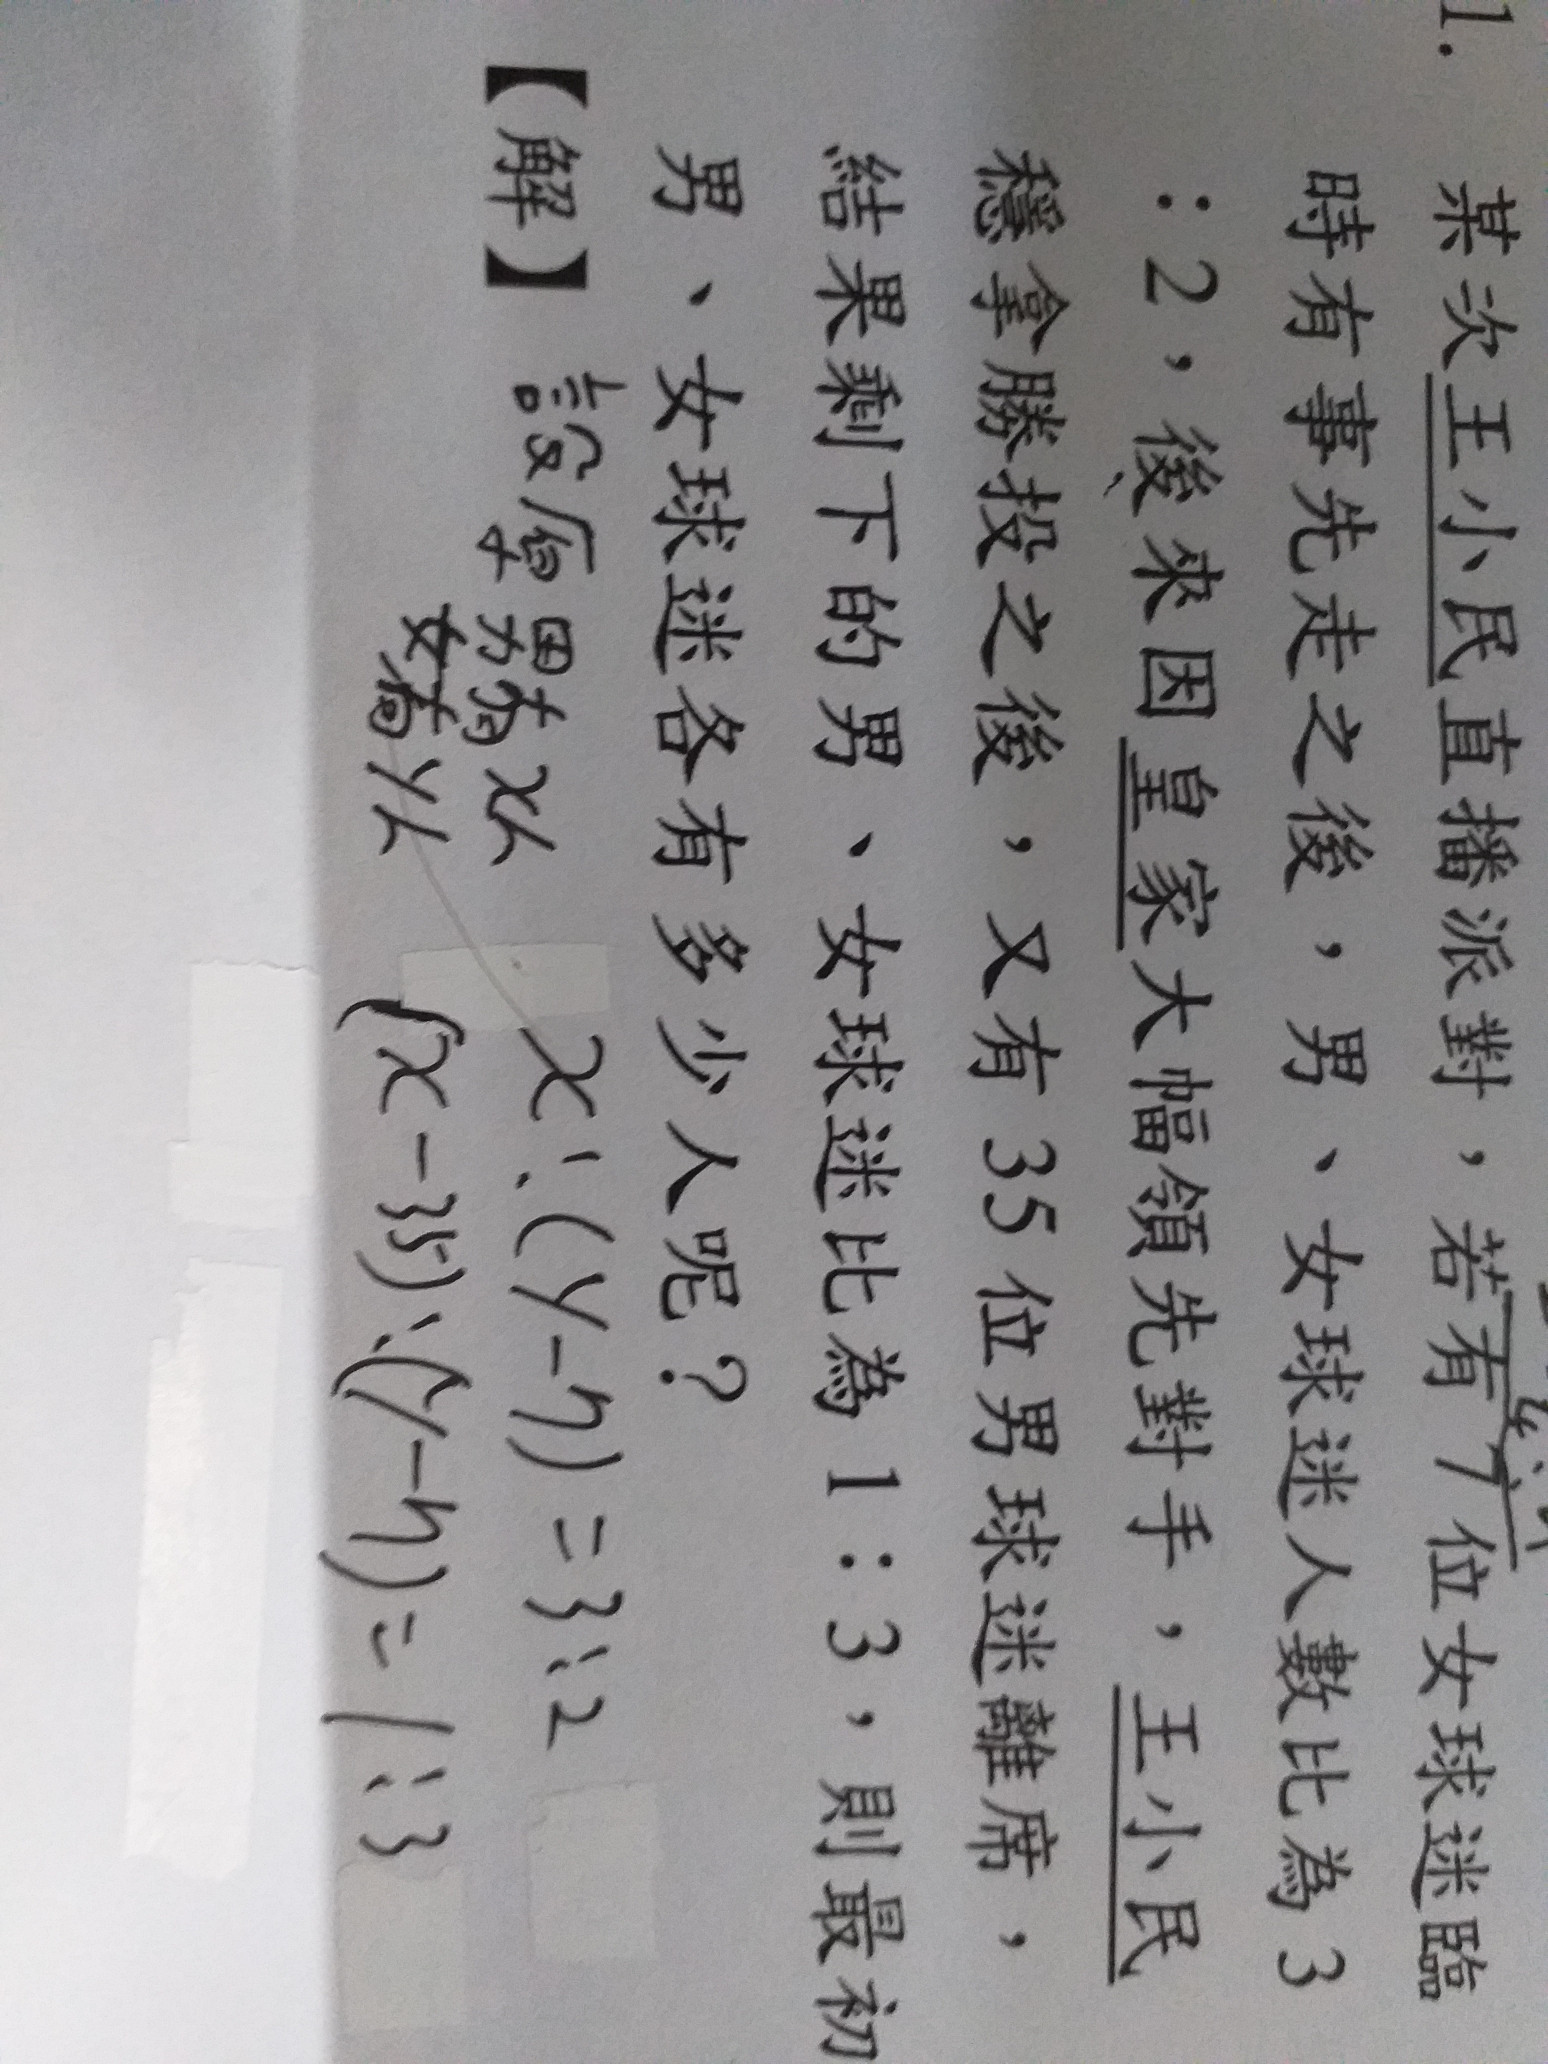 1. 某次王小民直播派對，若有 7 位女球迷臨
時有事先走之後，男、女球迷人數比為 3
：2，後來因皇家大幅領先對手，王小民
穩拿勝投之後，又有 35 位男球迷離席，
結果剩下的男、女球迷比為 1：3，則最初
男、女球迷各有多少人呢？
【解】 設原男有 x人 x:(y-7)=3:2
女有 y人 (x-35):(y-7)=1:3